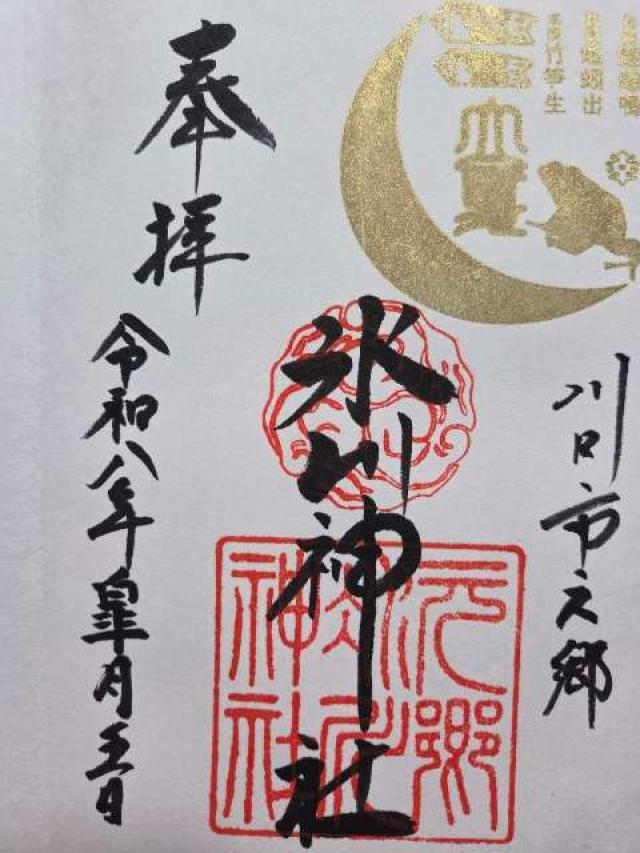 立夏
蛙始鳴
蚯蚓出
竹笋生
川口市元郷
奉拝
氷川神社
元郷
氷川
神社
令和八年皐月五日